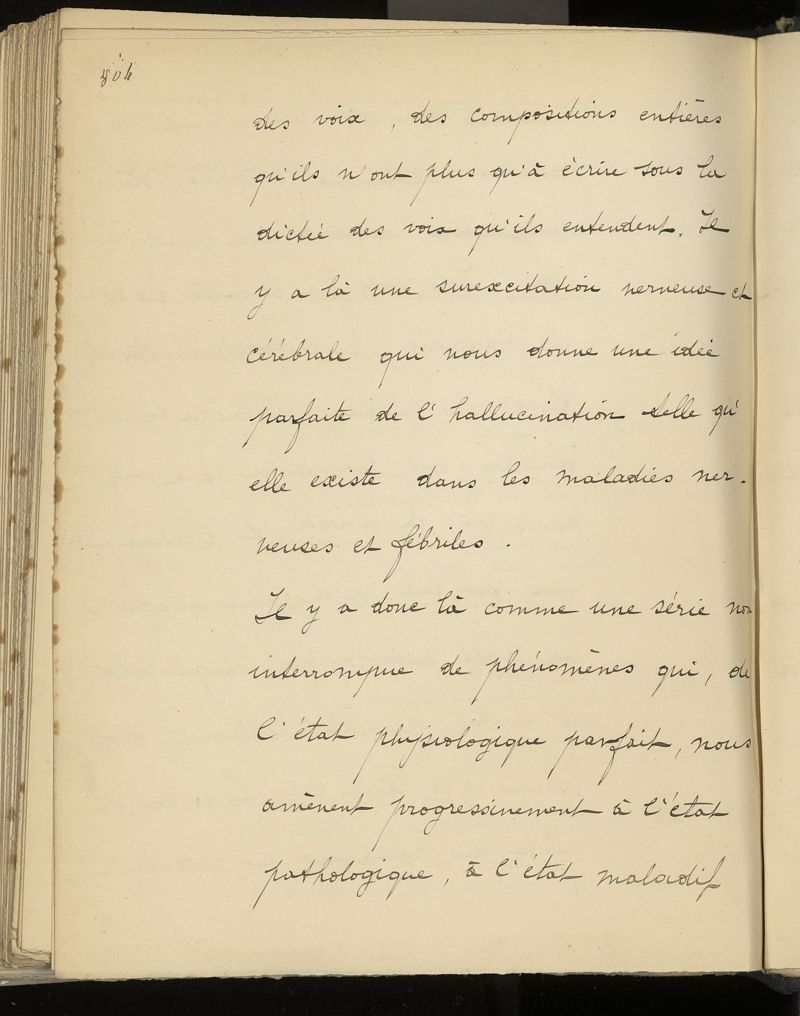 804
des voix, des compositions entières
qu'ils n'ont plus qu'à écrire sous la
dictée des voix qu'ils entendent. Il
y a là une surexcitation nerveuse et
cérébrale qui nous donne une idée
parfaite de l'hallucination telle qu'
elle existe dans les maladies ner-
veuses et fébriles.
Il y a donc là comme une série non
interrompue de phénomènes qui, de
l'état physiologique parfait, nous
amènent progressivement à l'état
pathologique, à l'état maladif